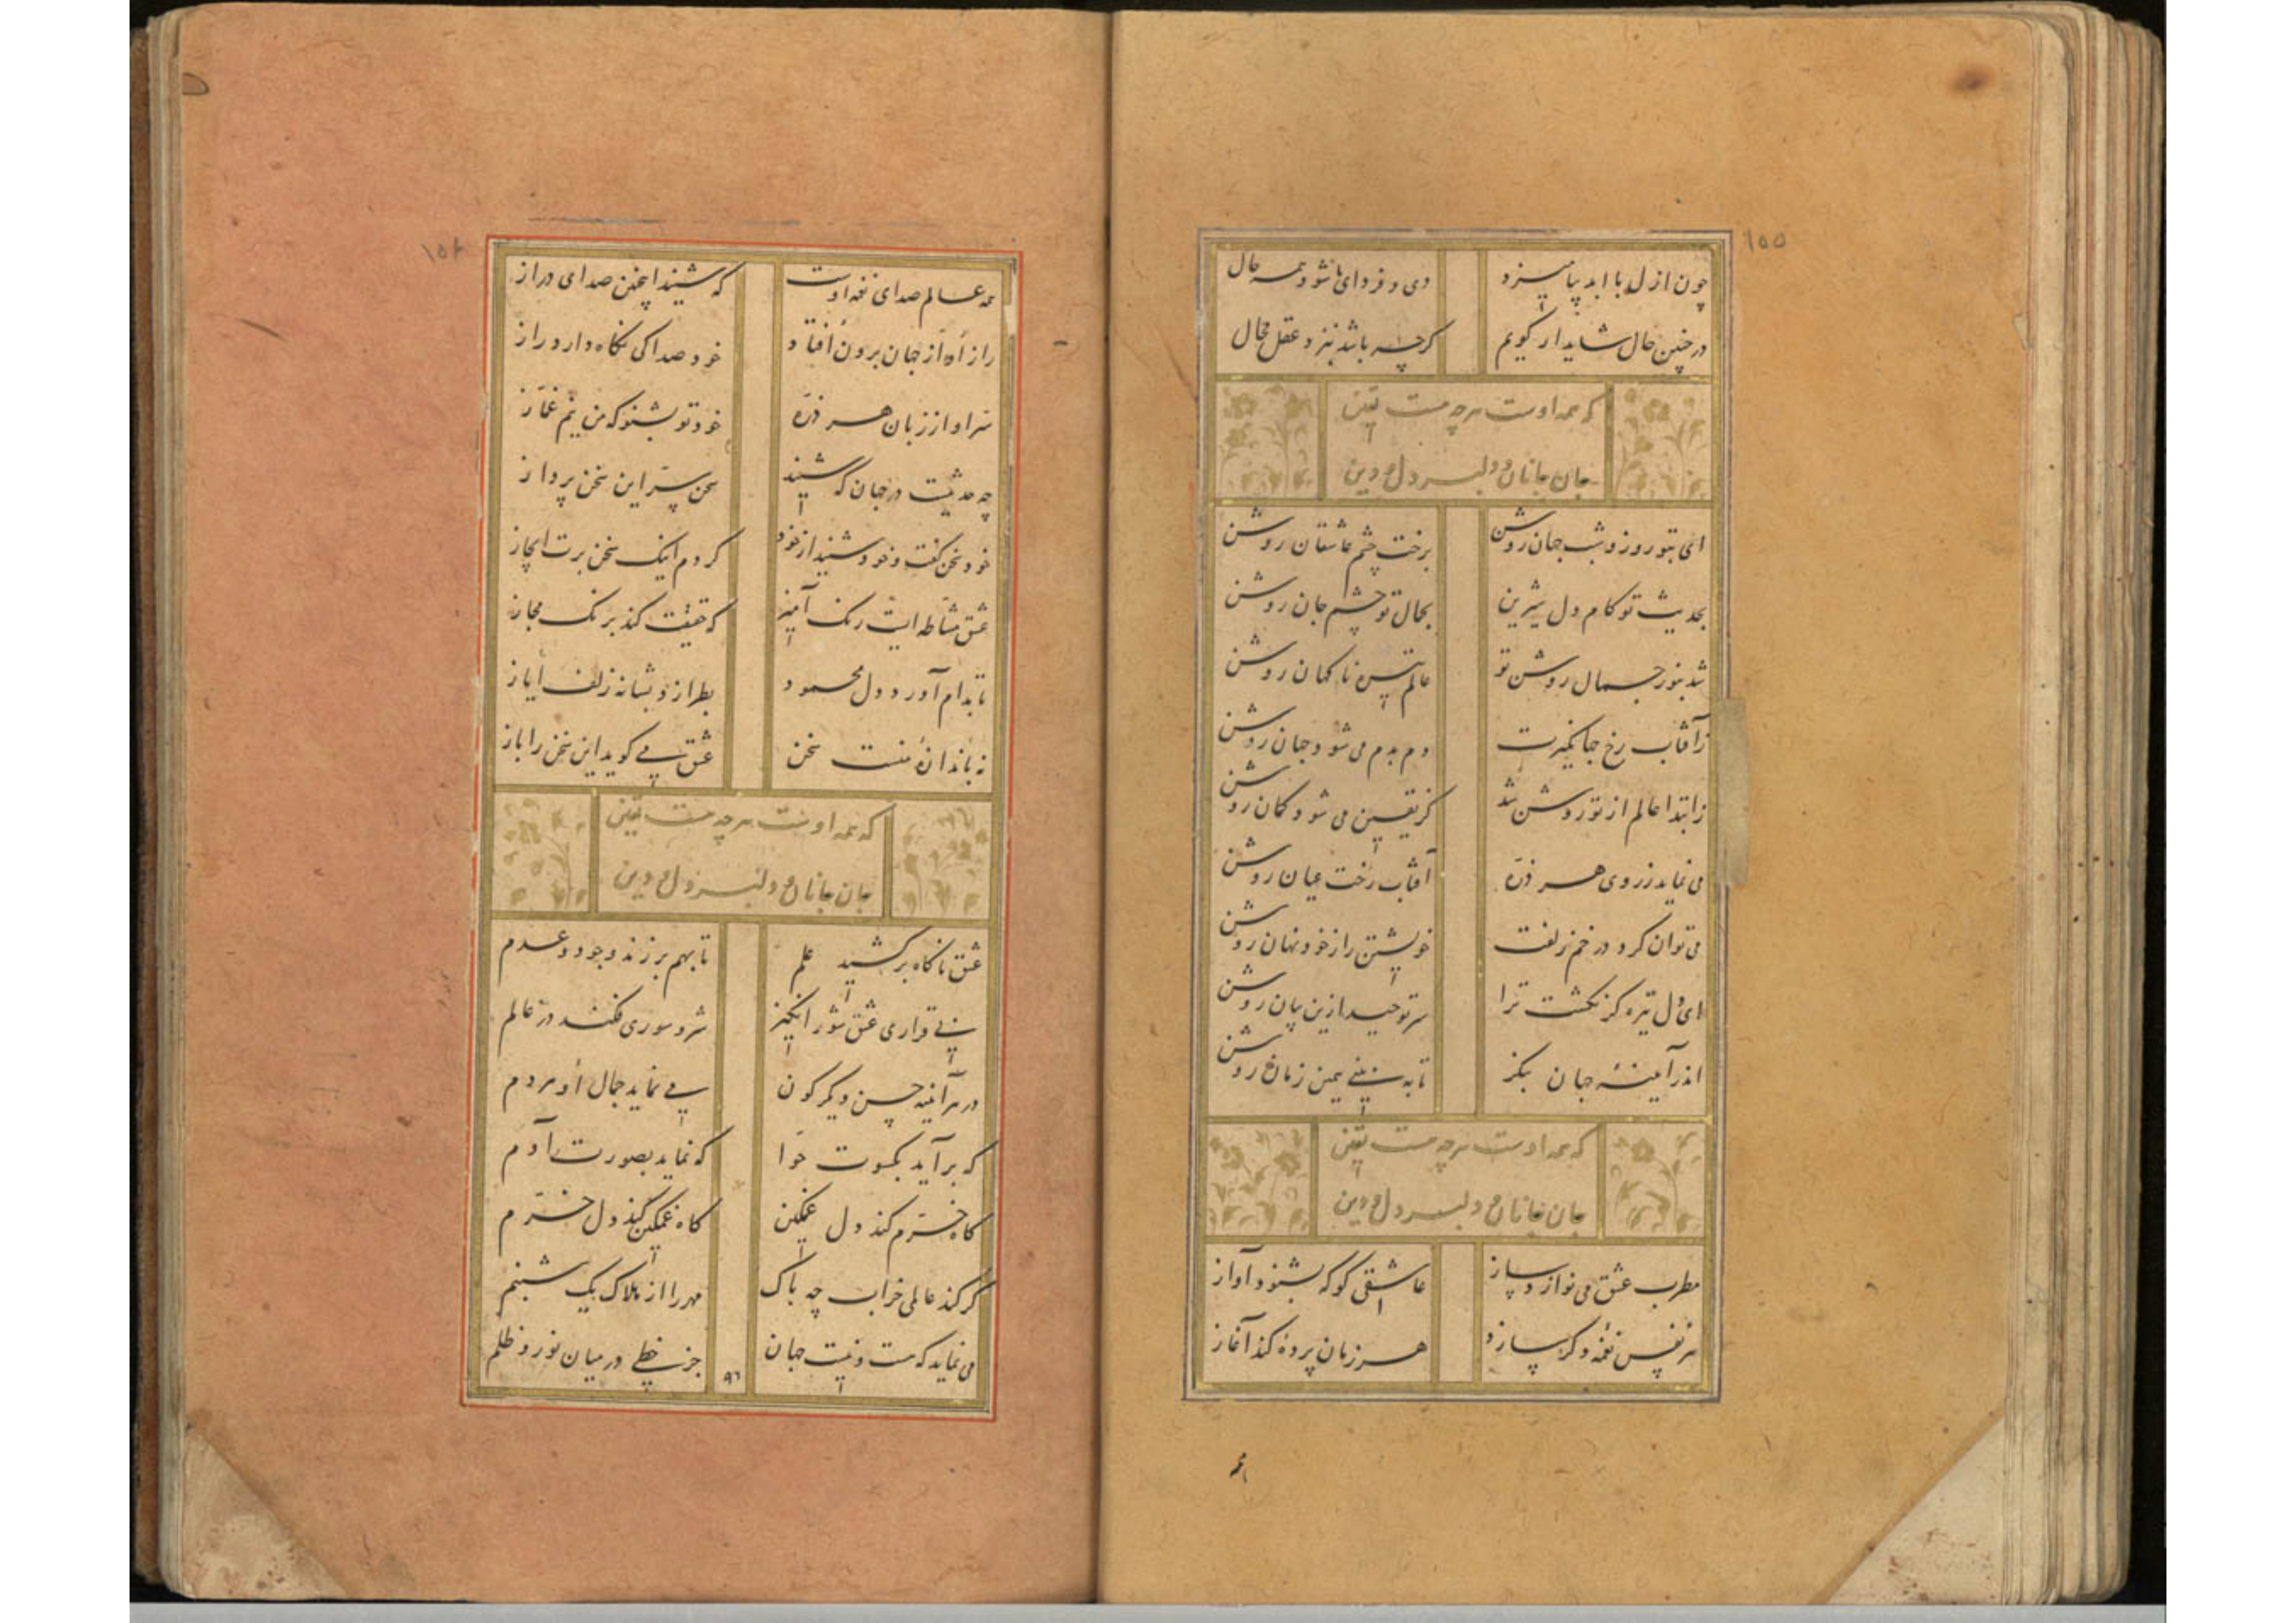 ۱۵۵
چون ازل با ابد بیامیزد دی و فردای ما شود همه حال
در چنین حال شاید ار گویم گرچه باشد بنزد عقل محال
که همه اوست هرچه هست یقین
جان و جانان و دلبر و دل و دین
ای بتو روز و شب جهان روشن برخت چشم عاشقان روشن
بحدیث تو کام دل شیرین بجمال تو چشم جان روشن
شد بنور جمال روشن تو عالم تیره ناگهان روشن
ز آفتاب رخ جهانگیرت دم بدم می شود جهان روشن
ز ابتدا عالم از تو روشن شد کز یقین می شود گمان روشن
می نماید ز روی هر ذره آفتاب رخت عیان روشن
می توان کرد در خم زلفت خویشتن را ز خود نهان روشن
ای دل تیره گر نگشت ترا سر توحید ازین بیان روشن
اندر آیینه جهان بنگر تا به بینی همین زمان روشن
که همه اوست هرچه هست یقین
جان و جانان و دلبر و دل و دین
مطرب عشق می نوازد ساز عاشقی کو که بشنود آواز
هر نفس نغمه دگر سازد هر زمان پرده کند آغاز
همه
۱۵۶
همه عالم صدای نغمه اوست که شنید اینچنین صدای دراز
راز او از جهان برون افتاد خود صدا کی نگاه دارد راز
سر او از زبان هر ذره خود تو بشنو که من نیم غماز
چه حدیثست در جهان که شنید سخن سر این سخن پرداز
خود سخن گفت و خود شنید از خود کردم اینک سخن برت ایجاز
عشق مشاطه ایست رنگ آمیز که حقیقت کند برنگ مجاز
تا بدام آورد دل محمود بطرازد بشانه زلف ایاز
نه باندازه منست سخن عشق می گوید این سخن را باز
که همه اوست هرچه هست یقین
جان و جانان و دلبر و دل و دین
عشق ناگاه برکشید علم تا بهم برزند وجود و عدم
بی قراری عشق شورانگیز شر و شوری فکند در عالم
در هر آینه حسن دیگرگون می نماید جمال او هر دم
که برآید بکسوت حوا که نماید بصورت آدم
گاه خرم کند دل غمگین گاه غمگین کند دل خرم
گر کند عالمی خراب چه باک مهر را از هلاک یک شبنم
می نماید که هست و نیست جهان جز خطی در میان نور و ظلم
۹۶